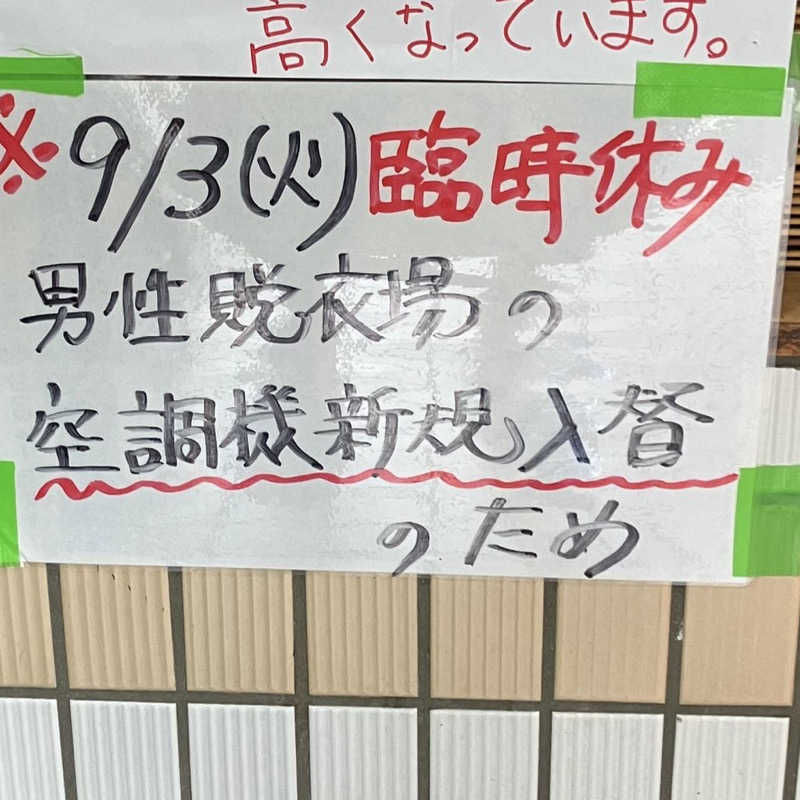 高くなっています。
※9/3(火)臨時休み
男性脱衣場の
空調機新規入替
のため